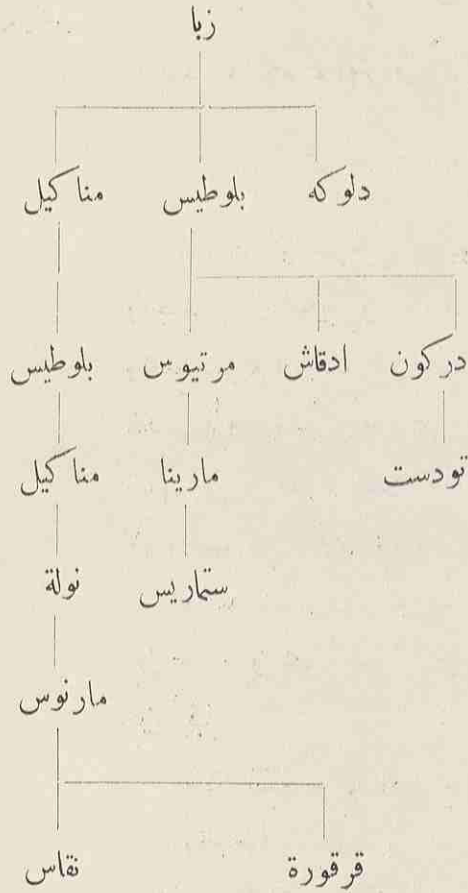 زبا
دلوكه بلوطيس مناكيل
دركون ادقاش مرتيوس بلوطيس
تودست مارينا مناكيل
ستماريس نولة
مارنوس
قرقورة نقاس